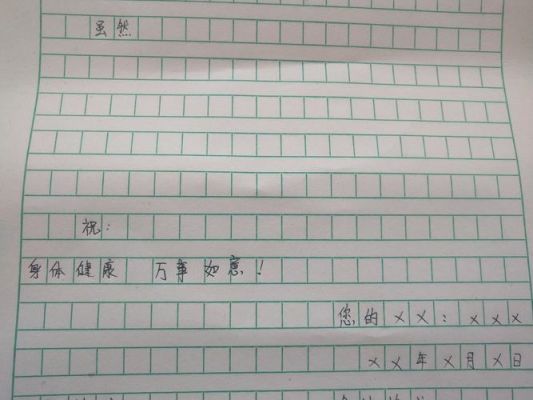 虽然
祝：
身体健康 万事如意！
您的××：×××
××年×月×日